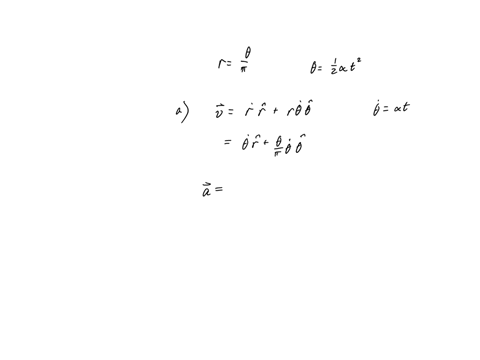 r = θ/π    θ = ½αt²
a) v⃗ = ṙ r̂ + r θ̇ θ̂    θ̇ = αt
= θ̇ r̂ + θ/π θ̇ θ̂
a⃗ =